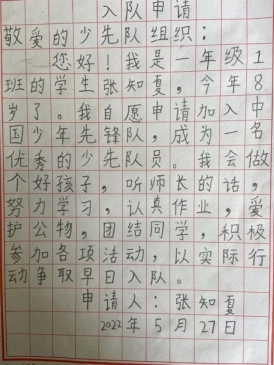 入队申请
敬爱的少先队组织：
您好！我是一年级1
班的学生张知夏，今年8
岁了。我自愿申请加入中
国少年先锋队，成为一名
优秀的少先队员。我会做
个好孩子，听师长的话，
努力学习，认真作业，爱
护公物，团结同学，积极
参加各项活动，以实际行
动争取早日入队。
申请人：张知夏
2022年5月27日